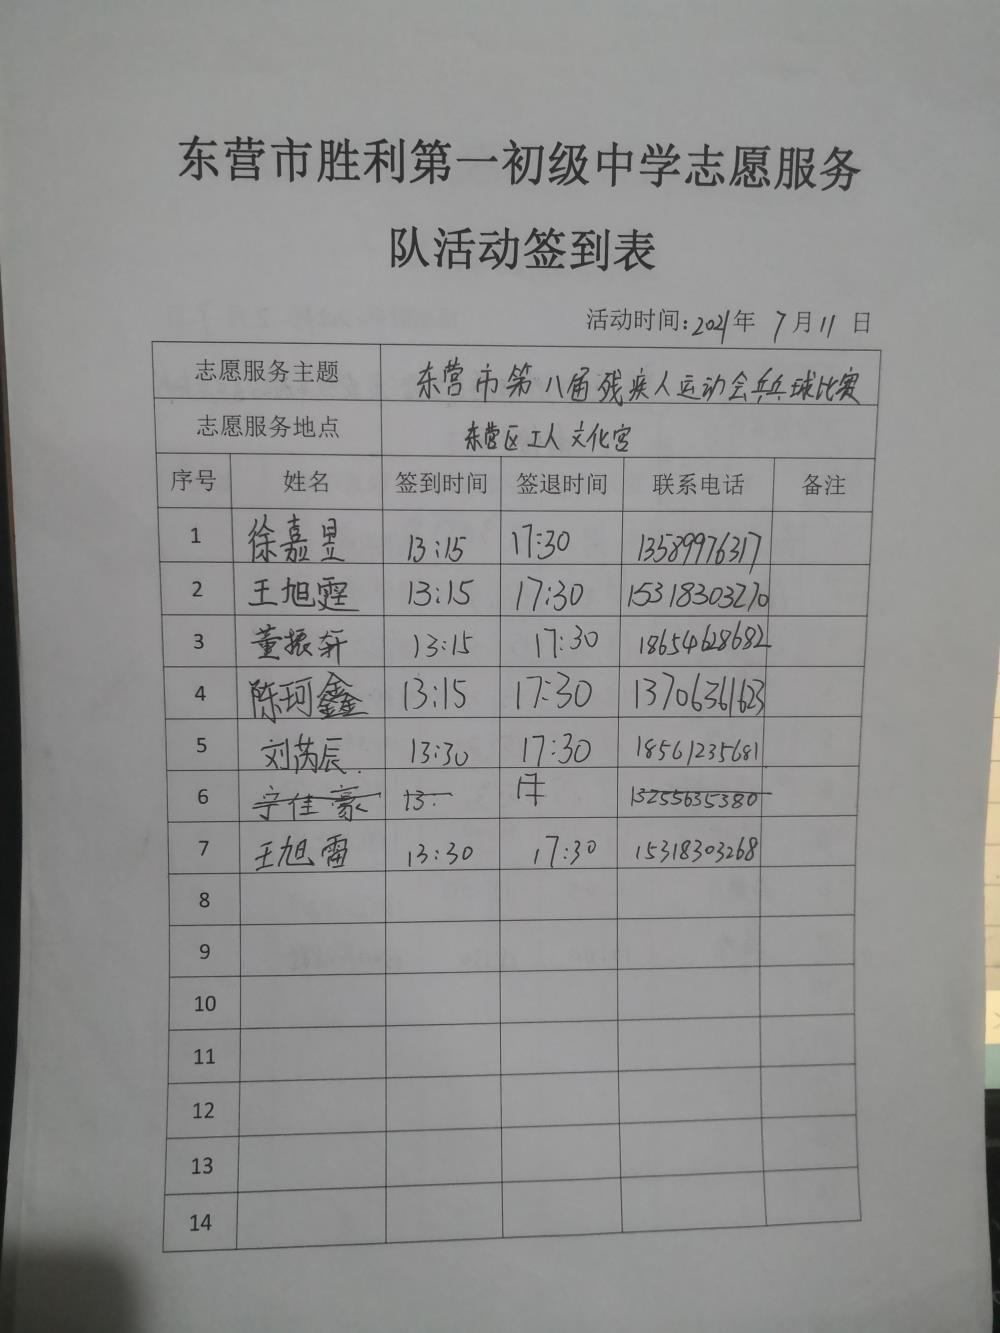 东营市胜利第一初级中学志愿服务
队活动签到表
活动时间:2021年 7月11 日
志愿服务主题 东营市第八届残疾人运动会乒乓球比赛
志愿服务地点 东营区工人文化宫
序号 姓名 签到时间 签退时间 联系电话 备注
1 徐嘉昱 13:15 17:30 13589976317
2 王旭霆 13:15 17:30 15318303270
3 董振轩 13:15 17:30 18654628682
4 陈珂鑫 13:15 17:30 13706361623
5 刘芮辰 13:30 17:30 18561235681
6 宁佳豪 13: 13255635380
7 王旭雷 13:30 17:30 15318303268
8
9
10
11
12
13
14